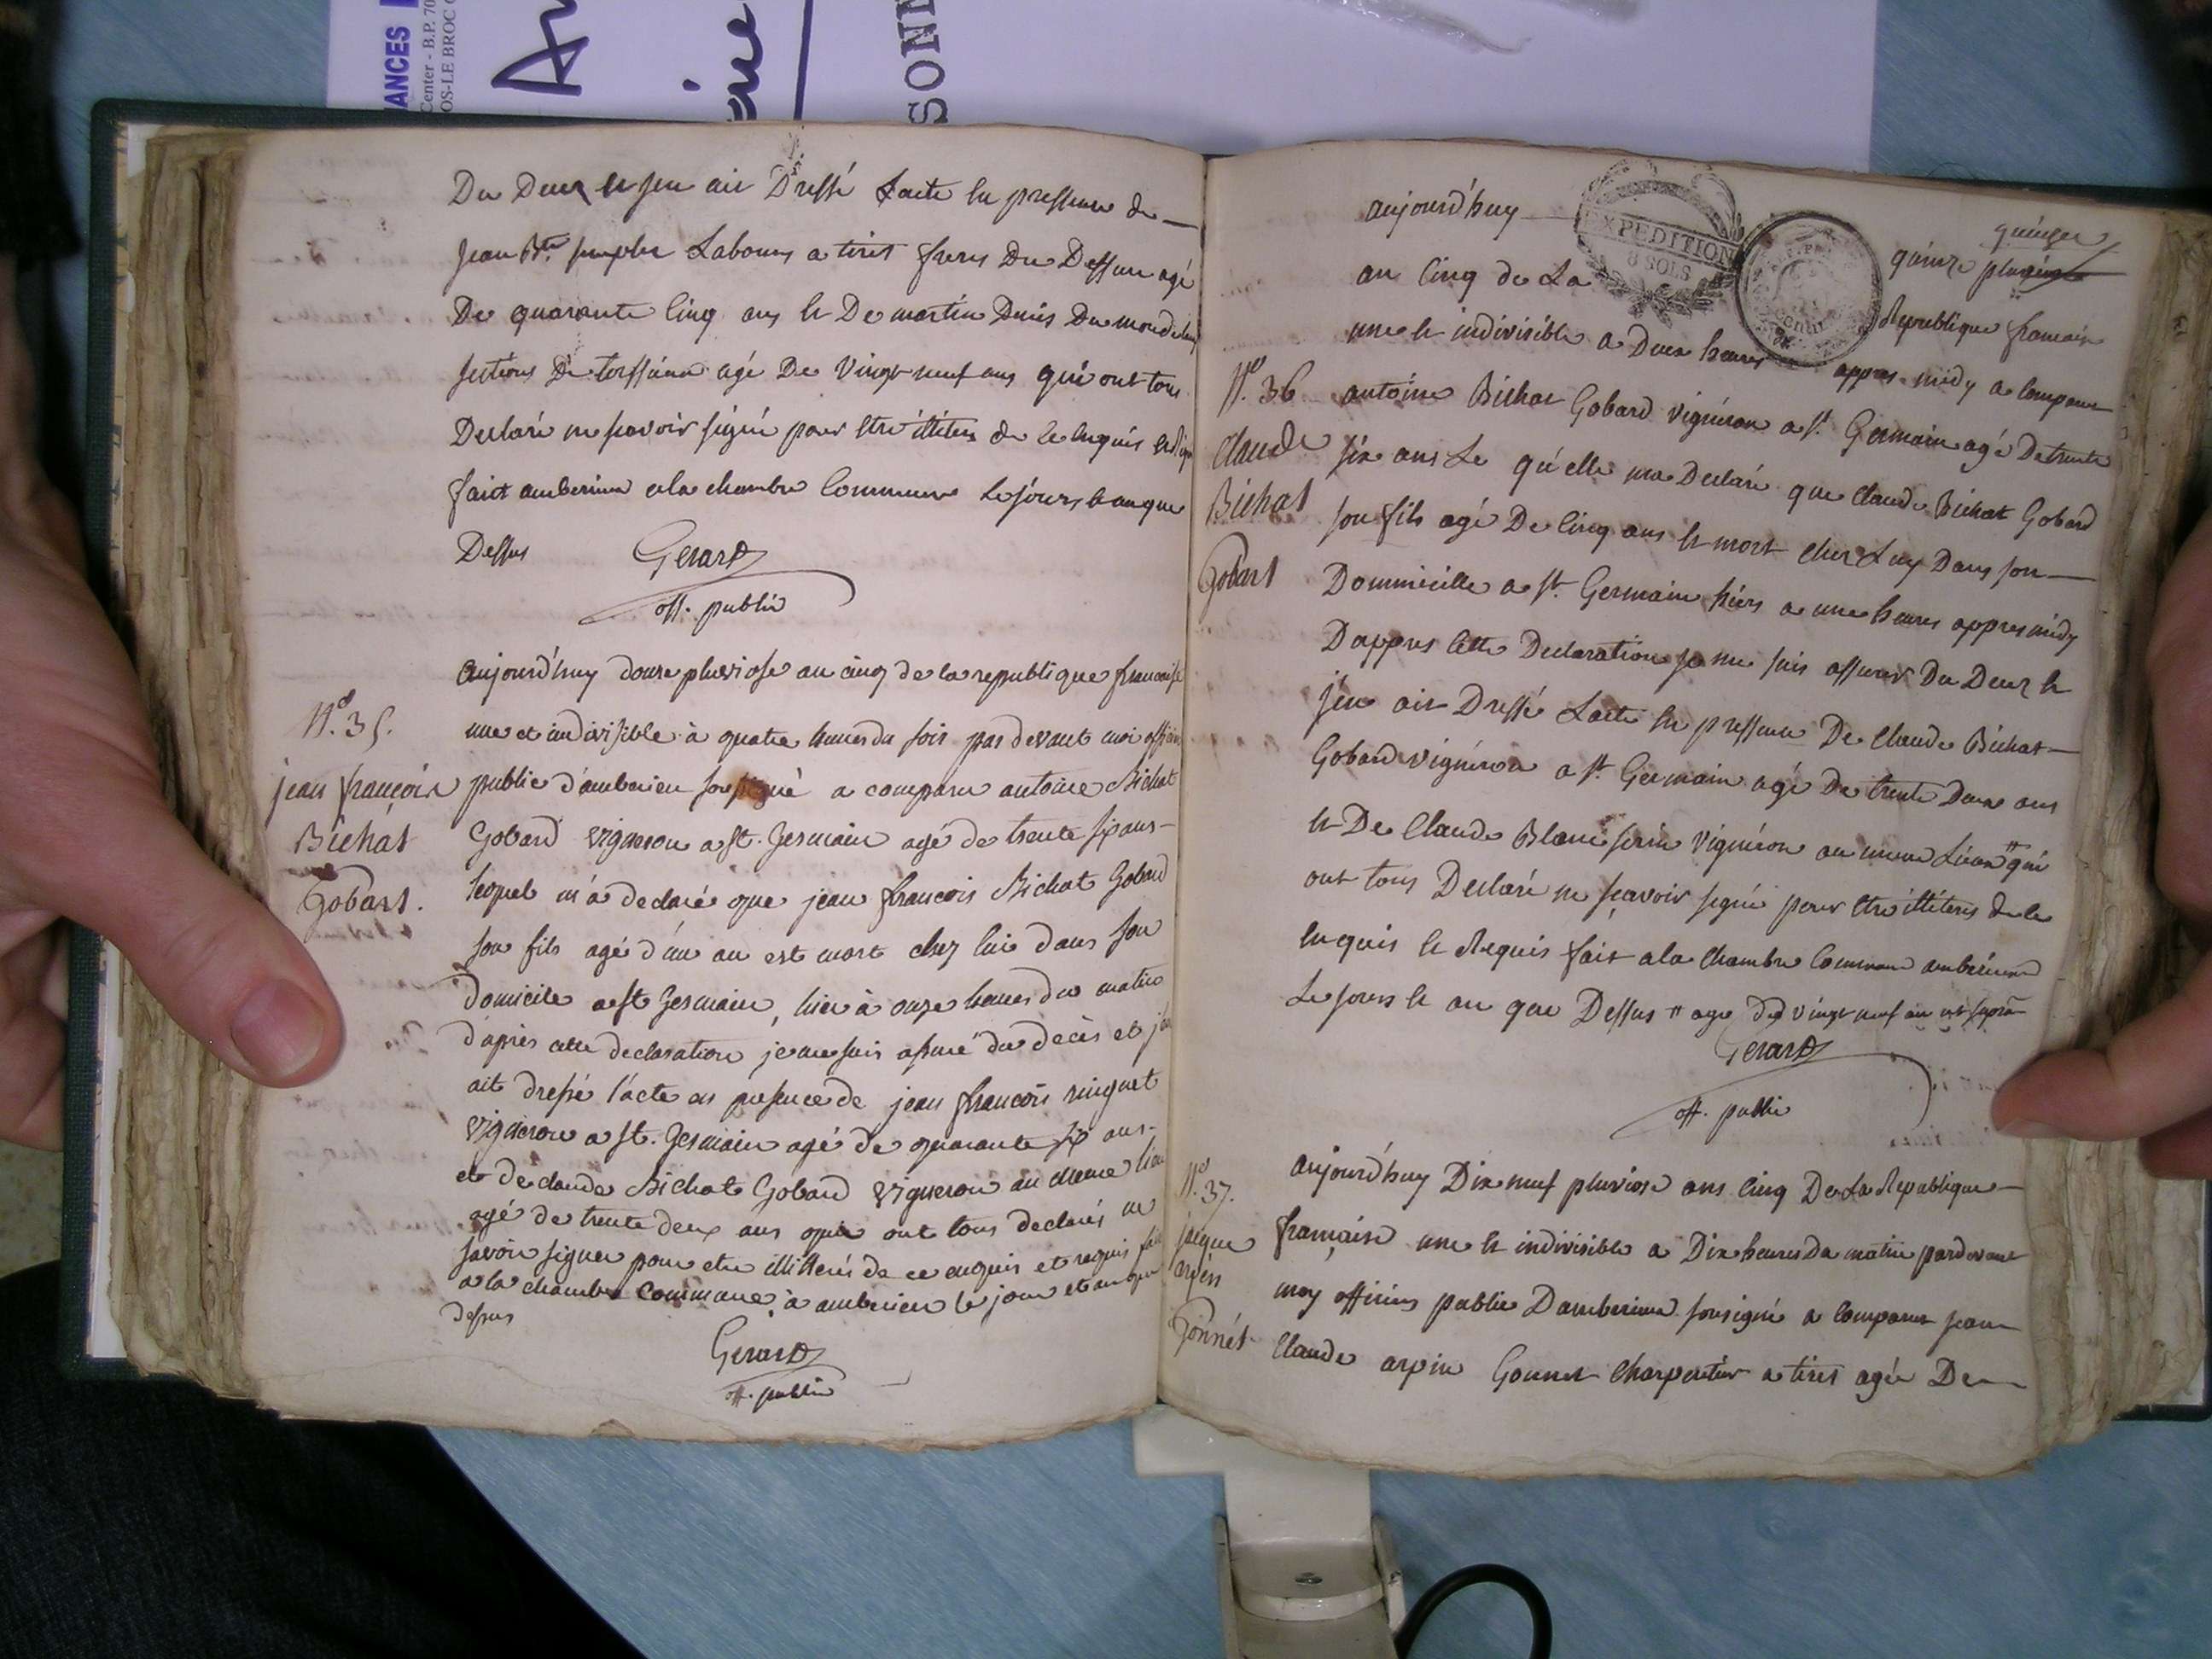 ANCES
Center - B.P. 70
OS-LE BROC C
SONN
Du Deux et jen ait Dressé Lacte en pressence de
jean Bte Labours a tiret frere Du Deffun agé
De quarante Cinq ans et De martin Denis
De agé De Vingt neuf ans qui ont tous
Declaré ne scavoir signé pour etre illiteres de ce enquis
fait amberieux a la chambre Commune Le jours et an que
Dessus Gerard
off. public
aujourd'huy douze pluviose an cinq de la republique francoise
N.o 35.
une et indivisible à quatre heures du soir par devant moi officier
jean françois
public d'amberieu soussigné a comparu antoine Bichat
Bichat
Gobard vigneron a St. Germain agé de trente six ans
Gobart.
lequel m'a declaré que jean francois Bichat Gobard
son fils agé d'un an est mort chez lui dans son
domicile a St Germain, hier à onze heures du matin
d'après cette declaration je me suis assuré du décès et j'en
ait dressé l'acte en presence de jean francois ringuet
vigneron a St. Germain agé de quarante six ans
et de claude Bichat Gobard vigneron au meme lieu
agé de trente deux ans qui ont tous declarés ne
savoir signer pour etre illitterés de ce enquis et requis fait
a la chambre Commune à amberieu le jour et an que
dessus
Gerard
off. public
aujourd'huy quinze
EXPEDITION
8 SOLS
quinze
an Cinq de La Republique francaise
une et indivisible a Deux heures appres midy a Comparu
N.o 36
antoine Bichat Gobard vigneron a St. Germain agé De trente
Claude
six ans Le qu'elle ma Declaré que Claude Bichat Gobard
Bichat
son fils agé De Cinq ans et mort chez Luy Dans son
Gobart
Dommicille a St. Germain hiers a une heures appres midy
Dappres Cette Declaration je me suis assurer Du Deux et
j'en ait Dressé Lacte en pressence De Claude Bichat
Gobard vigneron a St. Germain agé De trente Deux ans
et De Claude Blanc vigneron au meme Lieux # qui
ont tous Declaré ne sçavoir signé pour etre illiteres de ce
enquis et Requis fait a la Chambre Commune amberieux
Le jours et an que Dessus # age de vingt neuf an ut supra
Gerard
off. public
N.o 37.
aujourd'huy Dix neuf pluviose ans Cinq De La Republique
jacque
française une et indivisible a Dix heures Du matin pardevant
arpin
moy officiers public Damberieux sousigné a Comparut jean
Gonnét
Claude arpin Gonnet Charpentier a tiret agée De